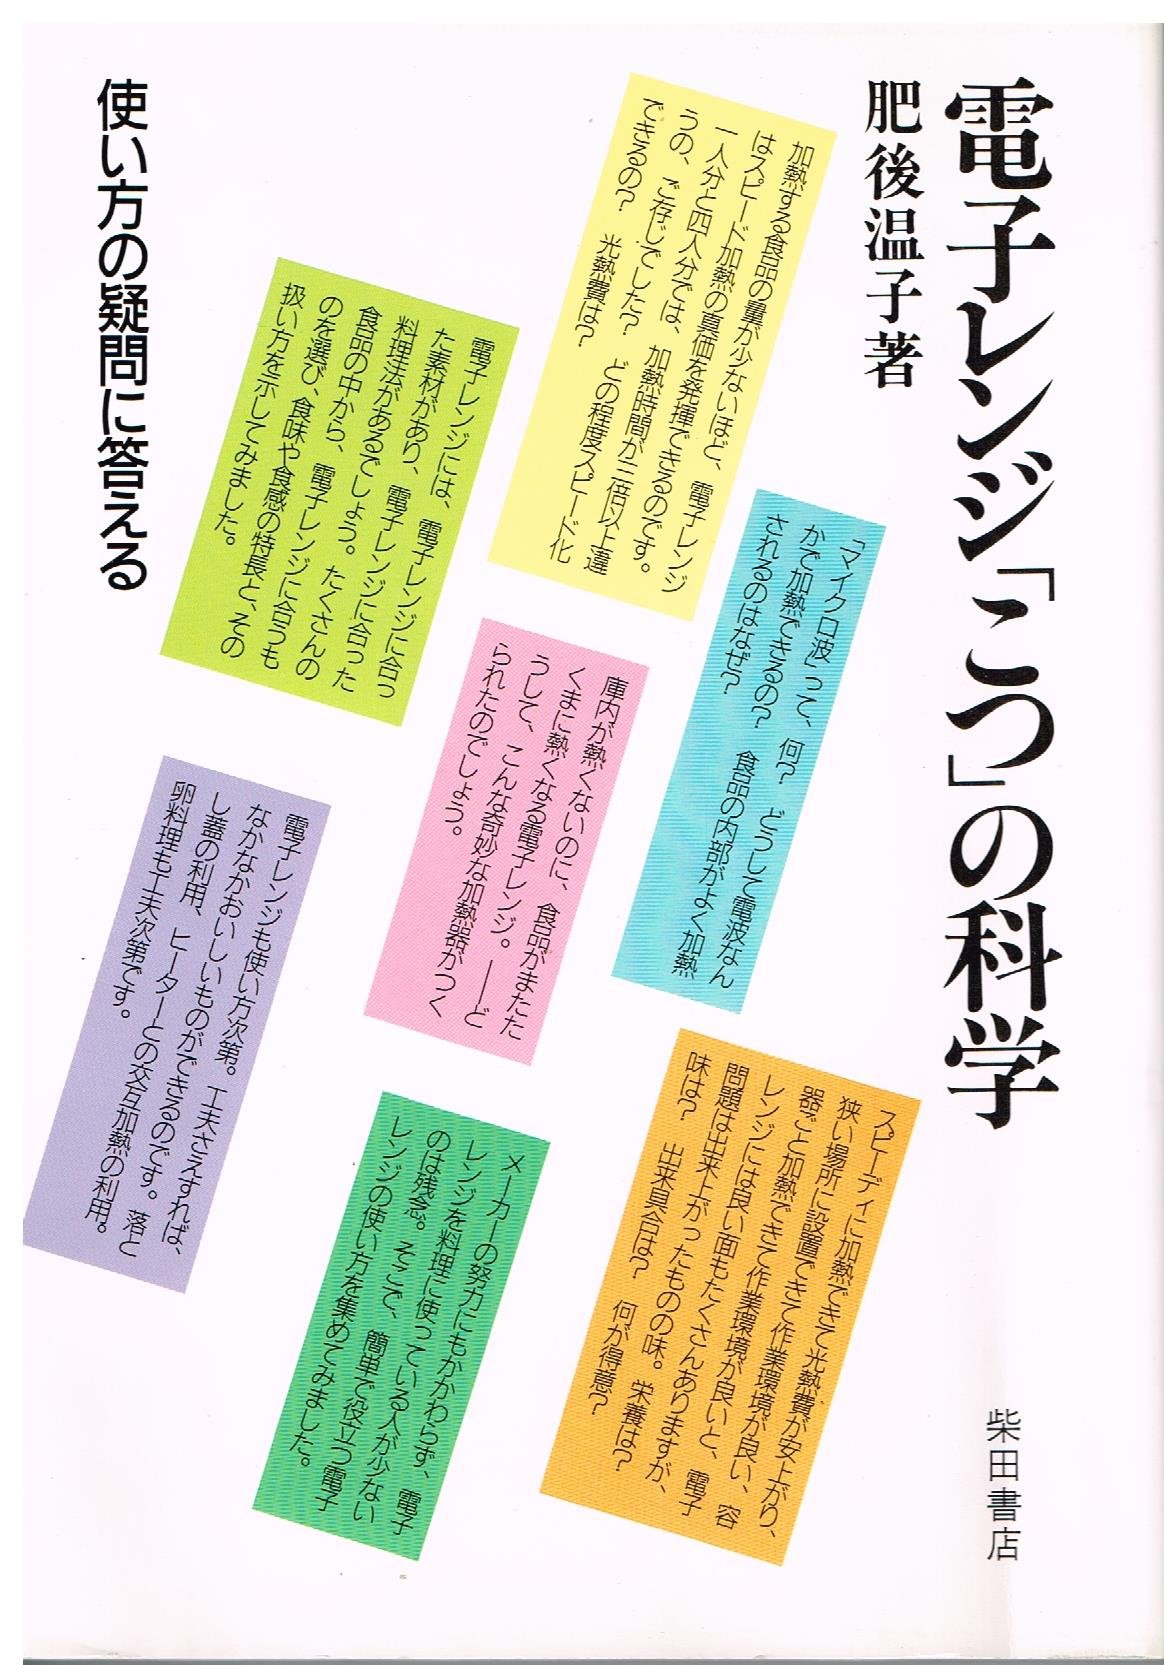 電子レンジ「こつ」の科学
肥後温子著
使い方の疑問に答える
加熱する食品の量が少ないほど、電子レンジ
はスピード加熱の真価を発揮できるのです。
一人分と四人分では、加熱時間が三倍以上違
うの、ご存じでした？　どの程度スピード化
できるの？　光熱費は？
「マイクロ波」って、何？　どうして電波なん
かで加熱できるの？　食品の内部がよく加熱
されるのはなぜ？
電子レンジには、電子レンジに合っ
た素材があり、電子レンジに合った
料理法があるでしょう。たくさんの
食品の中から、電子レンジに合うも
のを選び、食味や食感の特長と、その
扱い方を示してみました。
庫内が熱くないのに、食品がまたた
くまに熱くなる電子レンジ。――ど
うして、こんな奇妙な加熱器がつく
られたのでしょう。
スピーディに加熱できて光熱費が安上がり、
狭い場所に設置できて作業環境が良い、容
器ごと加熱できて作業環境が良いと、電子
レンジには良い面もたくさんありますが、
問題は出来上がったものの味。栄養は？
味は？　出来具合は？　何が得意？
電子レンジも使い方次第。工夫さえすれば、
なかなかおいしいものができるのです。落と
し蓋の利用、ヒーターとの交互加熱の利用。
卵料理も工夫次第です。
メーカーの努力にもかかわらず、電子
レンジを料理に使っている人が少ない
のは残念。そこで、簡単で役立つ電子
レンジの使い方を集めてみました。
柴田書店